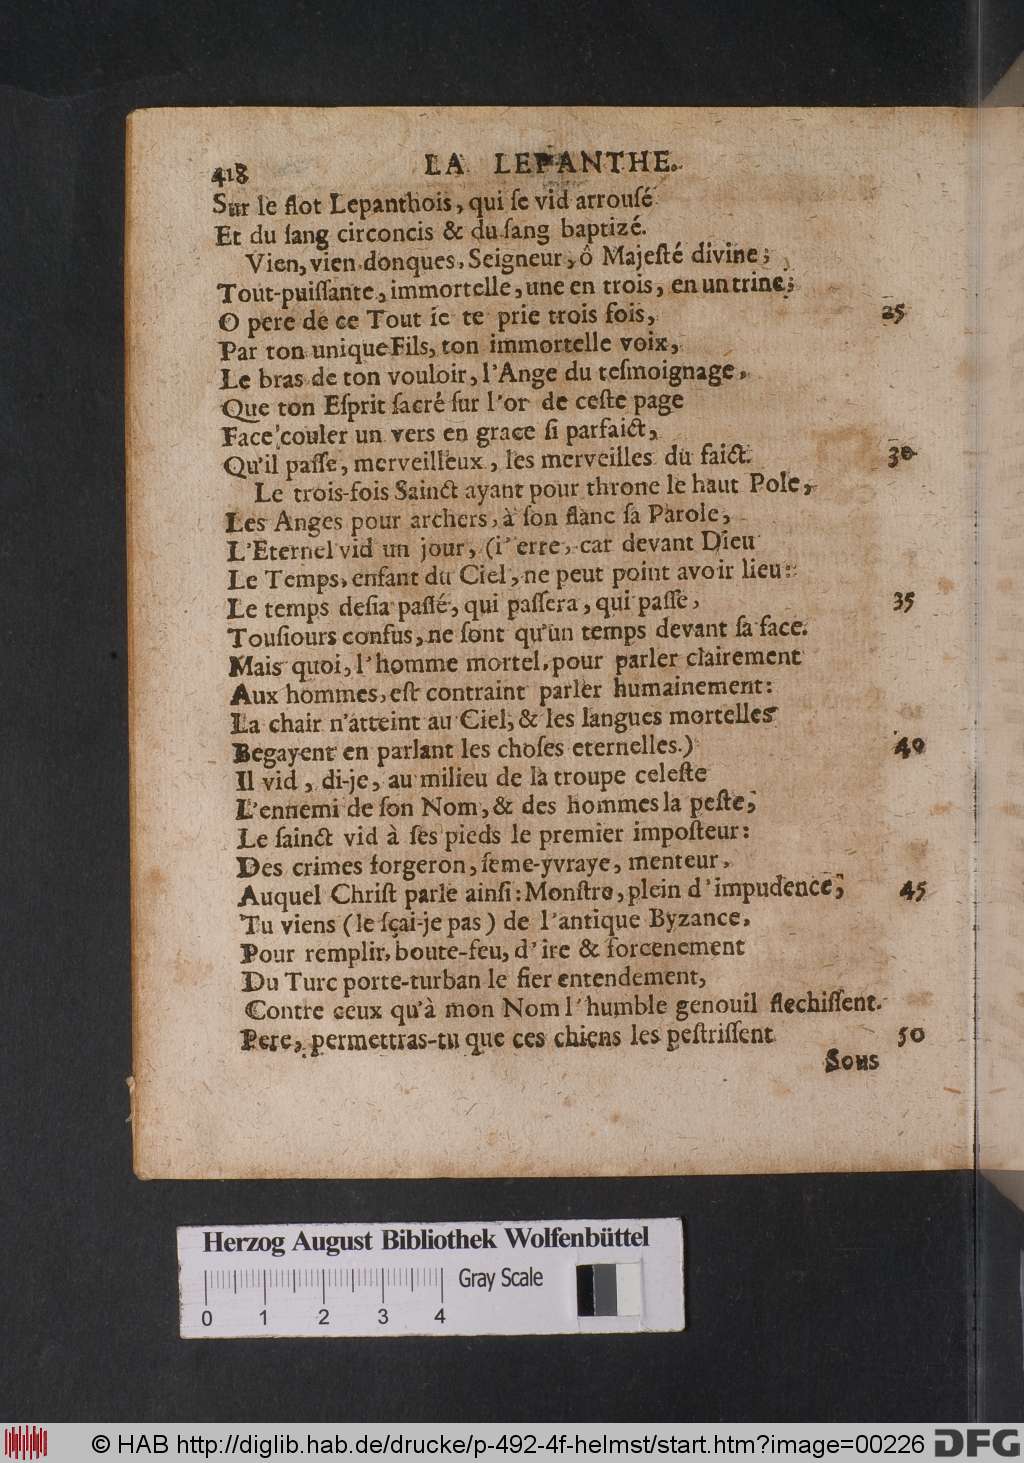 418 LA LEPANTHE.
Sur le flot Lepanthois, qui ſe vid arrouſé
Et du ſang circoncis & du ſang baptizé.
Vien, vien donques, Seigneur, ô Majeſté divine;
Tout-puiſſante, immortelle, une en trois, en un trine;
O pere de ce Tout ie te prie trois fois, 25
Par ton unique Fils, ton immortelle voix,
Le bras de ton vouloir, l'Ange du teſmoignage,
Que ton Eſprit ſacré ſur l'or de ceſte page
Face couler un vers en grace ſi parfaict,
Qu'il paſſe, merveilleux, les merveilles du faict. 30
Le trois-fois Sainct ayant pour throne le haut Pole,
Les Anges pour archers, à ſon flanc ſa Parole,
L'Eternel vid un jour, (i'erre, car devant Dieu
Le Temps, enfant du Ciel, ne peut point avoir lieu:
Le temps deſia paſſé, qui paſſera, qui paſſe, 35
Touſiours confus, ne ſont qu'un temps devant ſa face.
Mais quoi, l'homme mortel, pour parler clairement
Aux hommes, eſt contraint parler humainement:
La chair n'atteint au Ciel, & les langues mortelles
Begayent en parlant les choſes eternelles.) 40
Il vid, di-je, au milieu de la troupe celeſte
L'ennemi de ſon Nom, & des hommes la peſte,
Le ſainct vid à ſes pieds le premier impoſteur:
Des crimes forgeron, ſeme-yvraye, menteur,
Auquel Chriſt parle ainſi: Monſtre, plein d'impudence, 45
Tu viens (le ſçai-je pas) de l'antique Byzance,
Pour remplir, boute-feu, d'ire & forcenement
Du Turc porte-turban le fier entendement,
Contre ceux qu'à mon Nom l'humble genouil flechiſſent.
Pere, permettras-tu que ces chiens les peſtriſſent 50
Sous
Herzog August Bibliothek Wolfenbüttel
Gray Scale
0 1 2 3 4
© HAB http://diglib.hab.de/drucke/p-492-4f-helmst/start.htm?image=00226 DFG